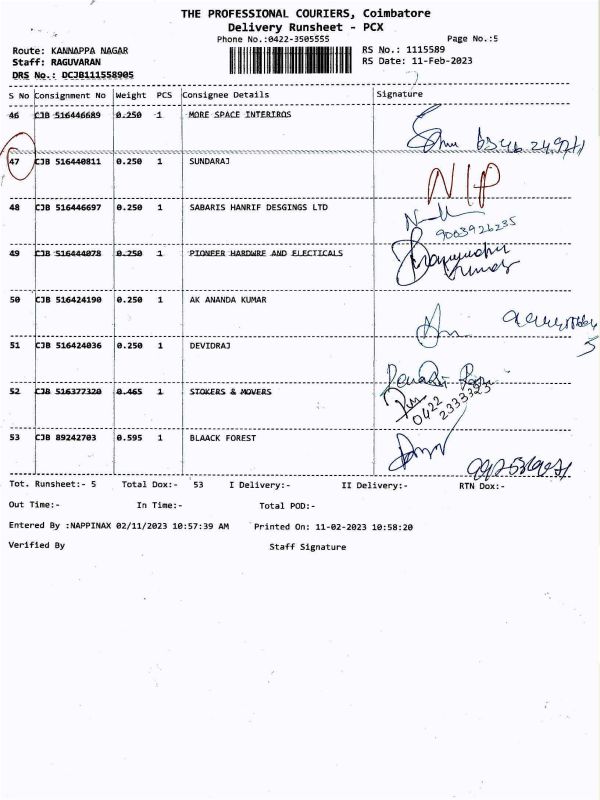 THE PROFESSIONAL COURIERS, Coimbatore
Delivery Runsheet - PCX
Phone No.:0422-3505555
Page No.:5
Route: KANNAPPA NAGAR
RS No.: 1115589
Staff: RAGUVARAN
RS Date: 11-Feb-2023
DRS No.: DCJB111558905
S No Consignment No Weight PCS Consignee Details Signature
46 CJB 516446689 0.250 1 MORE SPACE INTERIROS
47 CJB 516440811 0.250 1 SUNDARAJ NIP
48 CJB 516446697 0.250 1 SABARIS HANRIF DESGINGS LTD
9003926235
49 CJB 516444078 0.250 1 PIONEER HARDWRE AND ELECTICALS
50 CJB 516424190 0.250 1 AK ANANDA KUMAR
51 CJB 516424036 0.250 1 DEVIDRAJ
52 CJB 516377320 0.465 1 STOKERS & MOVERS
0422
2333323
53 CJB 89242703 0.595 1 BLAACK FOREST
Tot. Runsheet:- 5 Total Dox:- 53 I Delivery:- II Delivery:- RTN Dox:-
Out Time:- In Time:- Total POD:-
Entered By :NAPPINAX 02/11/2023 10:57:39 AM Printed On: 11-02-2023 10:58:20
Verified By Staff Signature